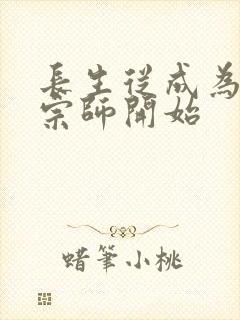 長生從成為
宗師開始
蜡筆小桃